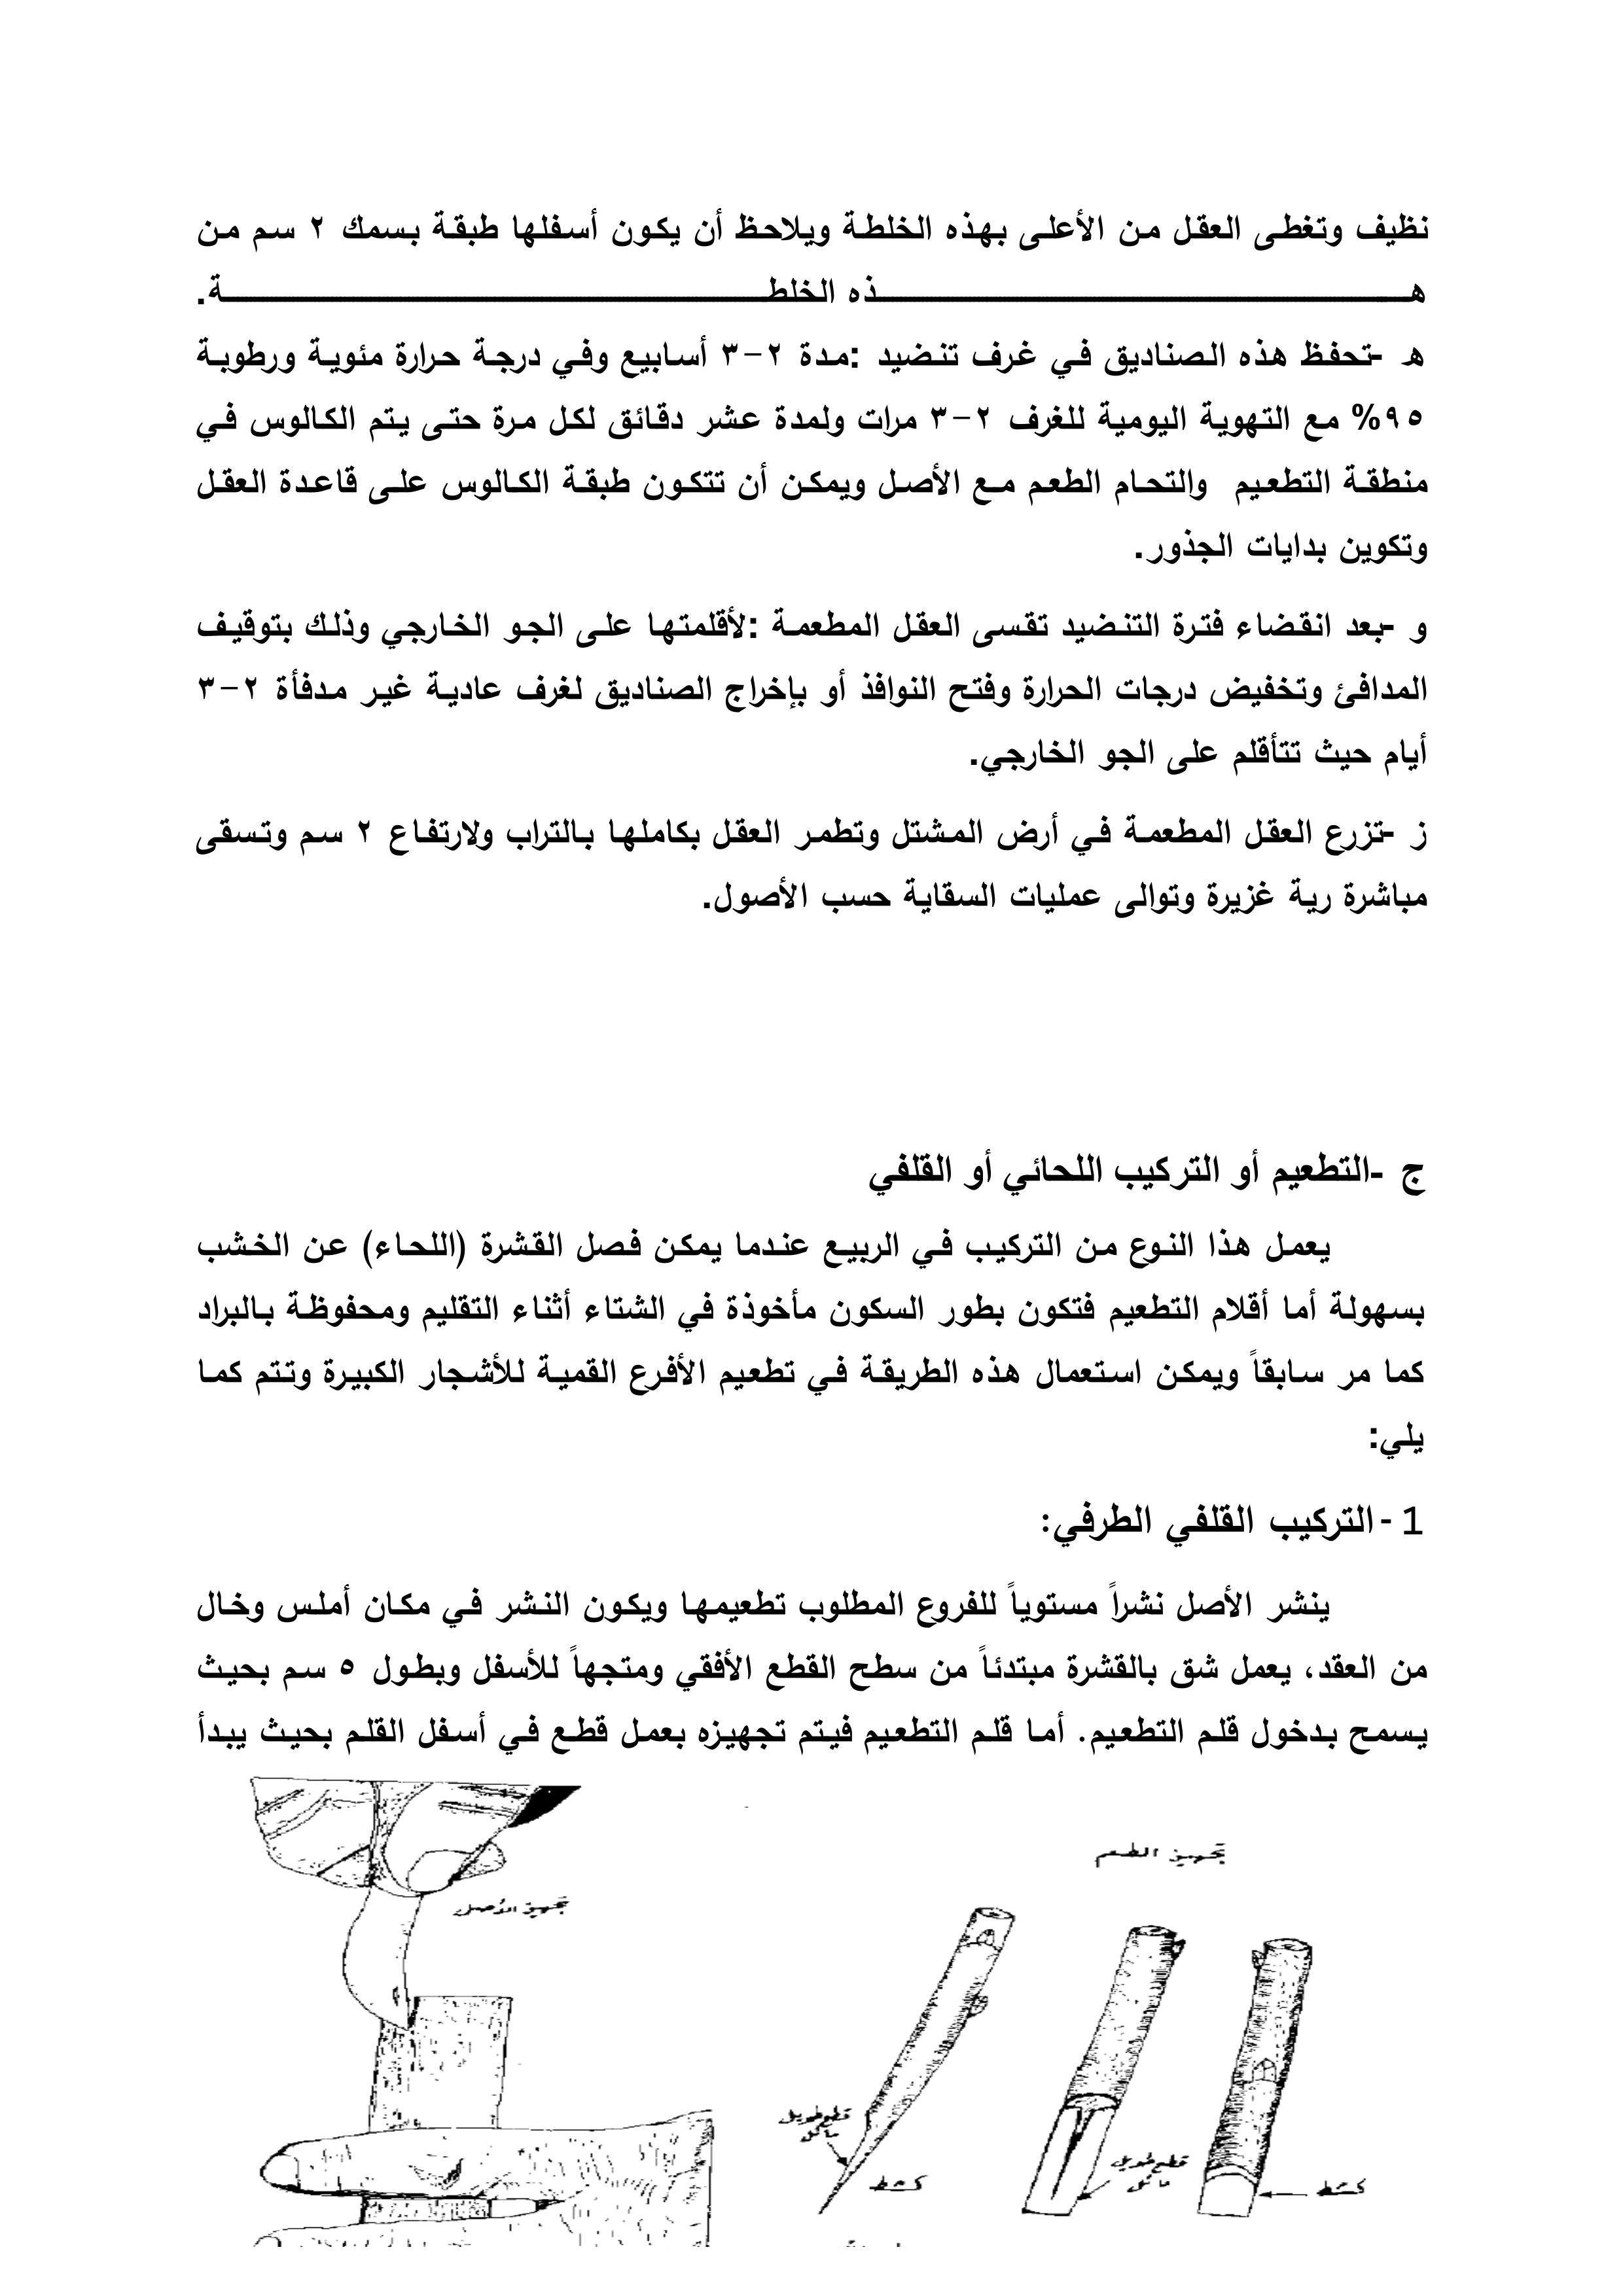 نظيف وتغطى العقل من الأعلى بهذه الخلطة ويلاحظ أن يكون أسفلها طبقة بسمك ٢ سم من
هذه الخلطة.
هـ -تحفظ هذه الصناديق في غرف تنضيد :مدة ٢-٣ أسابيع وفي درجة حرارة مئوية ورطوبة
٩٥% مع التهوية اليومية للغرف ٢-٣ مرات ولمدة عشر دقائق لكل مرة حتى يتم الكالوس في
منطقة التطعيم والتحام الطعم مع الأصل ويمكن أن تتكون طبقة الكالوس على قاعدة العقل
وتكوين بدايات الجذور.
و -بعد انقضاء فترة التنضيد تقسى العقل المطعمة :لأقلمتها على الجو الخارجي وذلك بتوقيف
المدافئ وتخفيض درجات الحرارة وفتح النوافذ أو بإخراج الصناديق لغرف عادية غير مدفأة ٢-٣
أيام حيث تتأقلم على الجو الخارجي.
ز -تزرع العقل المطعمة في أرض المشتل وتطمر العقل بكاملها بالتراب ولارتفاع ٢ سم وتسقى
مباشرة رية غزيرة وتوالى عمليات السقاية حسب الأصول.
ج -التطعيم أو التركيب اللحائي أو القلفي
يعمل هذا النوع من التركيب في الربيع عندما يمكن فصل القشرة (اللحاء) عن الخشب
بسهولة أما أقلام التطعيم فتكون بطور السكون مأخوذة في الشتاء أثناء التقليم ومحفوظة بالبراد
كما مر سابقاً ويمكن استعمال هذه الطريقة في تطعيم الأفرع القمية للأشجار الكبيرة وتتم كما
يلي:
1 -التركيب القلفي الطرفي:
ينشر الأصل نشراً مستوياً للفروع المطلوب تطعيمها ويكون النشر في مكان أملس وخال
من العقد، يعمل شق بالقشرة مبتدئاً من سطح القطع الأفقي ومتجهاً للأسفل وبطول ٥ سم بحيث
يسمح بدخول قلم التطعيم. أما قلم التطعيم فيتم تجهيزه بعمل قطع في أسفل القلم بحيث يبدأ
تجهيز الطعم
تجهيز الأصل
قطع طويل
مائل
كشط
قطع طويل
مائل
كشط